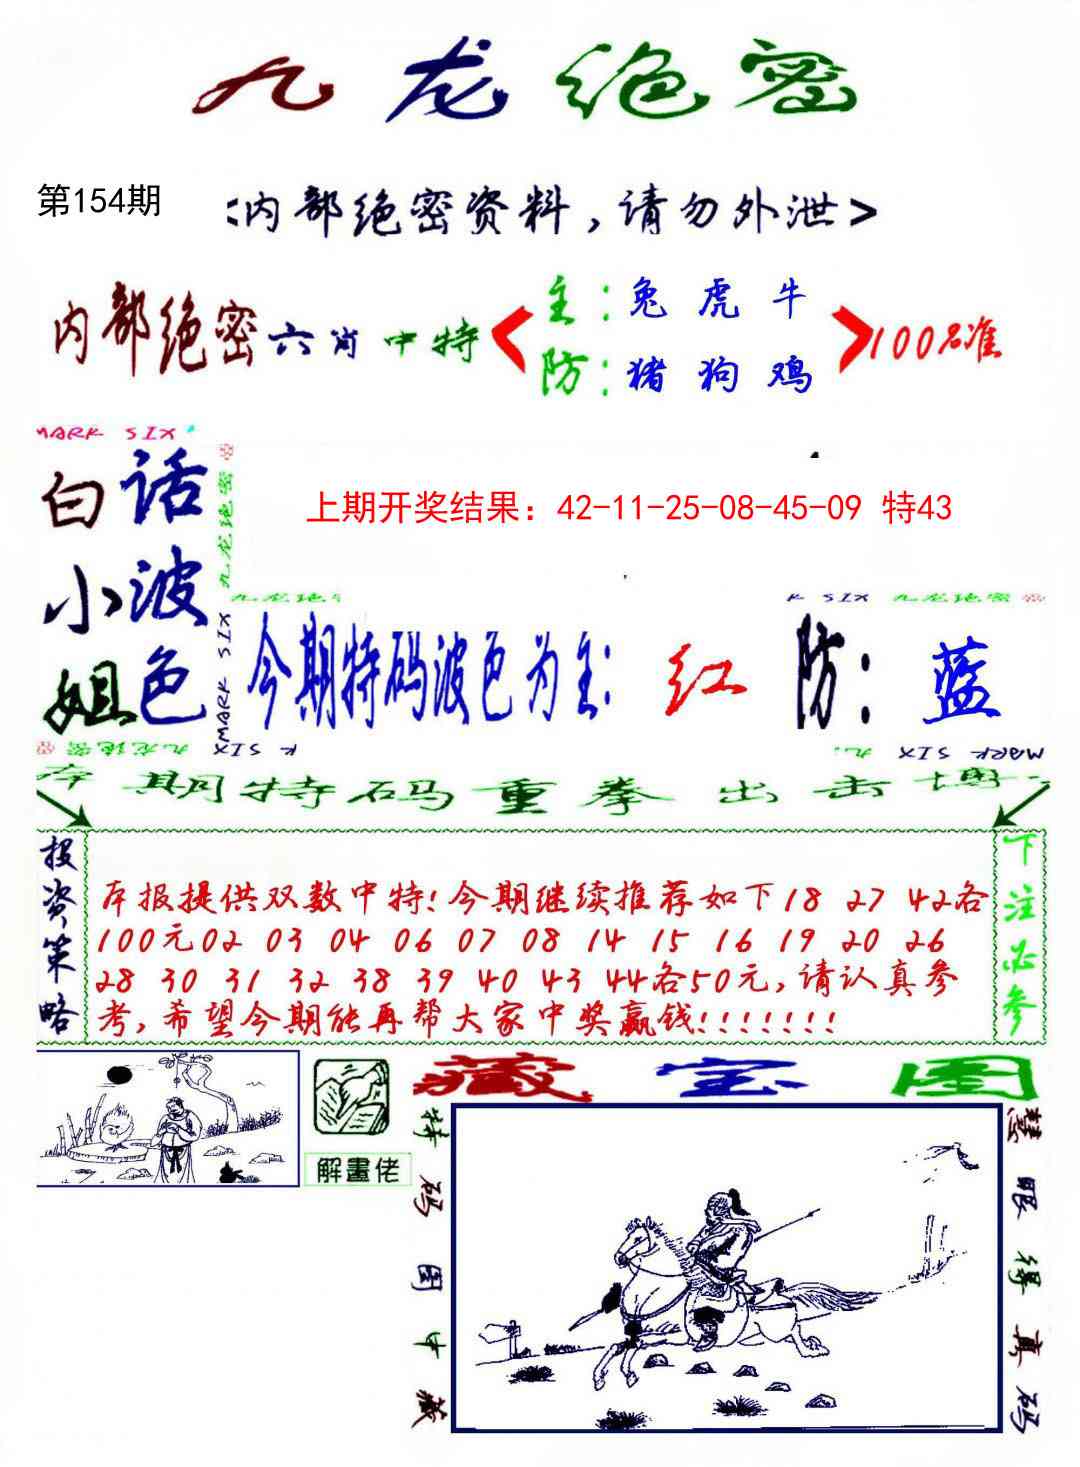 九龙绝密
第154期
<内部绝密资料,请勿外泄>
内部绝密六肖中特
主:兔 虎 牛
防:猪 狗 鸡
100%准
MARK SIX
白话
小波
姐色
九龙绝密
MARK SIX
上期开奖结果：42-11-25-08-45-09 特43
九龙绝密
K SIX 九龙绝密
今期特码波色为主: 红 防: 蓝
九龙绝密
MARK SIX
K SIX
MARK SIX
本期特码重拳出击博
投资策略
本报提供双数中特!今期继续推荐如下18 27 42各
100元02 03 04 06 07 08 14 15 16 19 20 26
28 30 31 32 38 39 40 43 44各50元,请认真参
考,希望今期能再帮大家中奖赢钱!!!!!!!
下注必参
解畫佬
藏宝图
特码图中藏
慧眼得真码